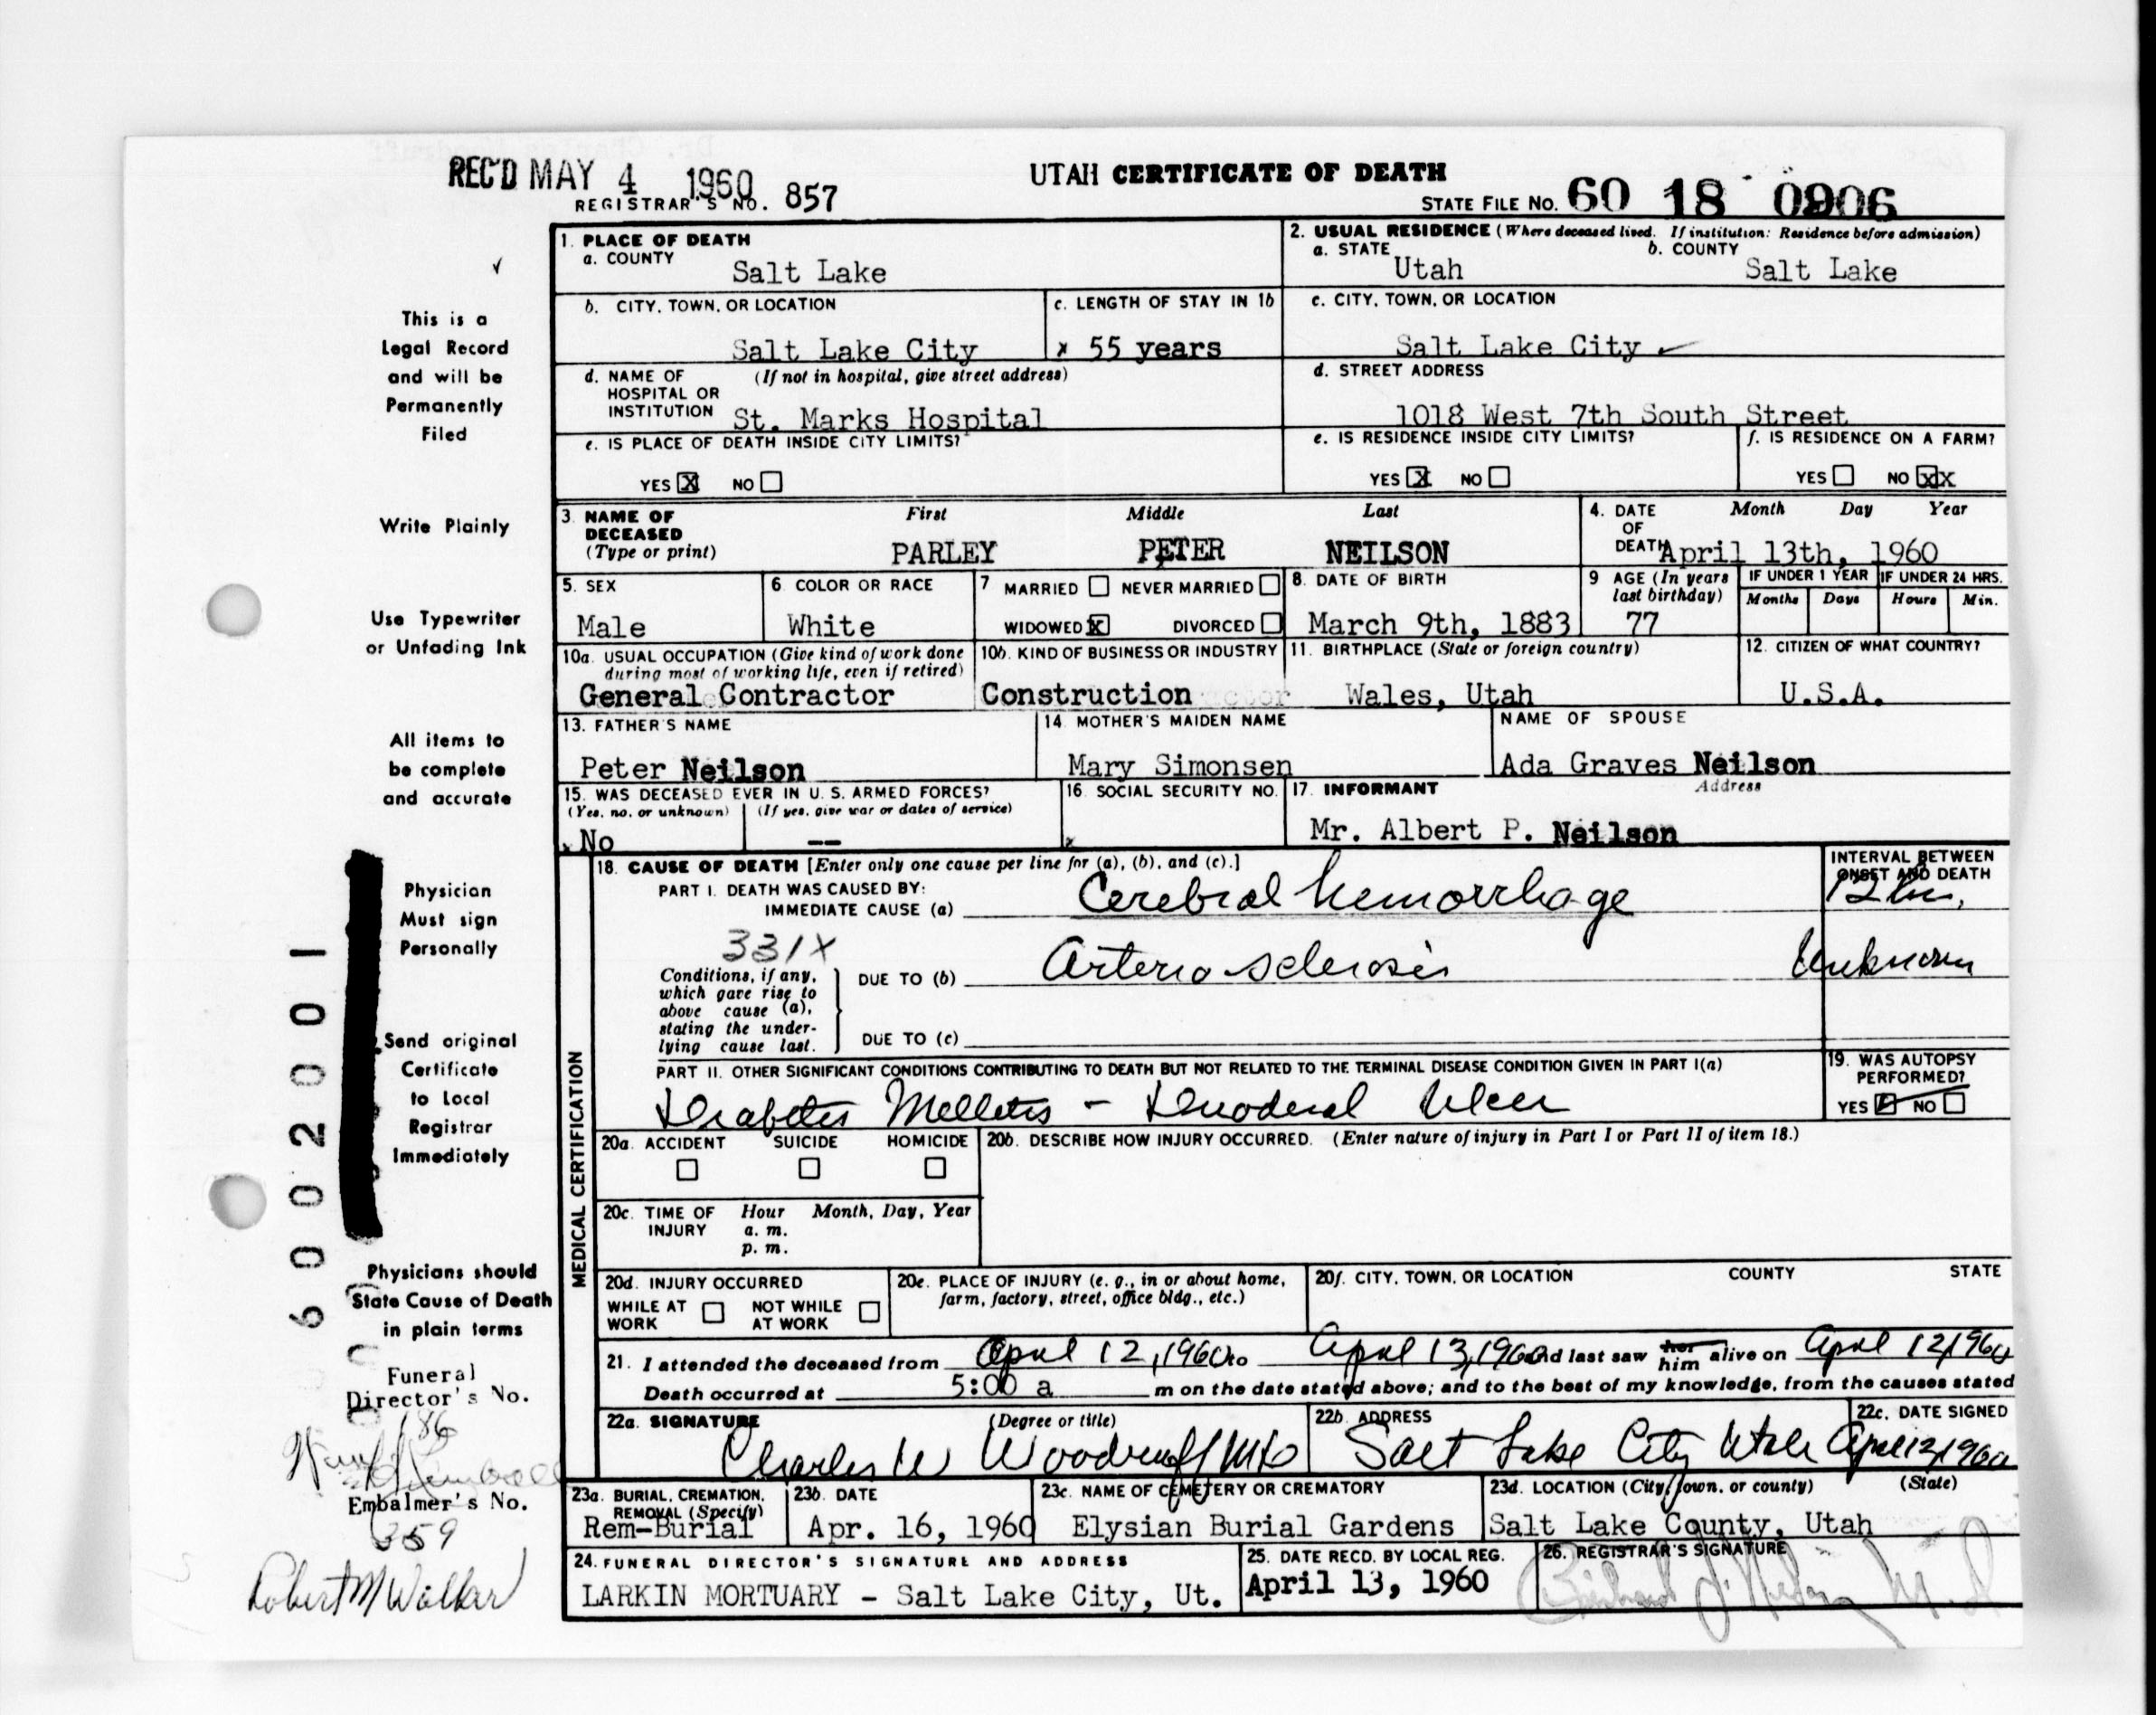 REC'D MAY 4 1960
REGISTRAR'S NO. 857
UTAH CERTIFICATE OF DEATH
STATE FILE NO. 60 18 0906
1. PLACE OF DEATH
a. COUNTY Salt Lake
2. USUAL RESIDENCE (Where deceased lived. If institution: Residence before admission)
a. STATE Utah b. COUNTY Salt Lake
b. CITY, TOWN, OR LOCATION Salt Lake City
c. LENGTH OF STAY IN 1b x 55 years
c. CITY, TOWN, OR LOCATION Salt Lake City
d. NAME OF HOSPITAL OR INSTITUTION (If not in hospital, give street address) St. Marks Hospital
d. STREET ADDRESS 1018 West 7th South Street
e. IS PLACE OF DEATH INSIDE CITY LIMITS?
YES X NO
e. IS RESIDENCE INSIDE CITY LIMITS?
YES X NO
f. IS RESIDENCE ON A FARM?
YES NO XX
3. NAME OF DECEASED (Type or print)
First Middle Last
PARLEY PETER NEILSON
4. DATE OF DEATH Month Day Year
April 13th, 1960
5. SEX Male
6. COLOR OR RACE White
7 MARRIED NEVER MARRIED
WIDOWED X DIVORCED
8. DATE OF BIRTH March 9th, 1883
9 AGE (In years last birthday) 77
IF UNDER 1 YEAR IF UNDER 24 HRS.
Months Days Hours Min.
10a. USUAL OCCUPATION (Give kind of work done during most of working life, even if retired)
General Contractor
10b. KIND OF BUSINESS OR INDUSTRY
Construction
11. BIRTHPLACE (State or foreign country)
Wales, Utah
12. CITIZEN OF WHAT COUNTRY?
U.S.A.
13. FATHER'S NAME
Peter Neilson
14. MOTHER'S MAIDEN NAME
Mary Simonsen
NAME OF SPOUSE
Ada Graves Neilson
15. WAS DECEASED EVER IN U. S. ARMED FORCES?
(Yes, no, or unknown) (If yes, give war or dates of service)
No --
16. SOCIAL SECURITY NO.
x
17. INFORMANT Address
Mr. Albert P. Neilson
MEDICAL CERTIFICATION
18. CAUSE OF DEATH [Enter only one cause per line for (a), (b), and (c).]
INTERVAL BETWEEN ONSET AND DEATH
PART I. DEATH WAS CAUSED BY:
IMMEDIATE CAUSE (a) Cerebral hemorrhage 12 hrs.
331X
Conditions, if any, which gave rise to above cause (a), stating the underlying cause last.
DUE TO (b) Arterio sclerosis Unknown
DUE TO (c)
PART II. OTHER SIGNIFICANT CONDITIONS CONTRIBUTING TO DEATH BUT NOT RELATED TO THE TERMINAL DISEASE CONDITION GIVEN IN PART I(a)
Diabetes Melletis - Duodenal Ulcer
19. WAS AUTOPSY PERFORMED?
YES NO
20a. ACCIDENT SUICIDE HOMICIDE
20b. DESCRIBE HOW INJURY OCCURRED. (Enter nature of injury in Part I or Part II of item 18.)
20c. TIME OF INJURY Hour Month, Day, Year
a. m.
p. m.
20d. INJURY OCCURRED
WHILE AT WORK NOT WHILE AT WORK
20e. PLACE OF INJURY (e. g., in or about home, farm, factory, street, office bldg., etc.)
20f. CITY, TOWN, OR LOCATION COUNTY STATE
21. I attended the deceased from April 12, 1960 to April 13, 1960 and last saw her him alive on April 12 1960
Death occurred at 5:00 a m on the date stated above; and to the best of my knowledge, from the causes stated
22a. SIGNATURE (Degree or title)
Charles W Woodruff MD
22b. ADDRESS
Salt Lake City Utah
22c. DATE SIGNED
April 12, 1960
23a. BURIAL, CREMATION, REMOVAL (Specify)
Rem-Burial
23b. DATE
Apr. 16, 1960
23c. NAME OF CEMETERY OR CREMATORY
Elysian Burial Gardens
23d. LOCATION (City, town, or county) (State)
Salt Lake County, Utah
24. FUNERAL DIRECTOR'S SIGNATURE AND ADDRESS
LARKIN MORTUARY - Salt Lake City, Ut.
25. DATE RECD. BY LOCAL REG.
April 13, 1960
26. REGISTRAR'S SIGNATURE
This is a
Legal Record
and will be
Permanently
Filed
Write Plainly
Use Typewriter
or Unfading Ink
All items to
be complete
and accurate
Physician
Must sign
Personally
Send original
Certificate
to Local
Registrar
Immediately
Physicians should
State Cause of Death
in plain terms
Funeral
Director's No.
186
Embalmer's No.
359
Robert M Walker
6002001